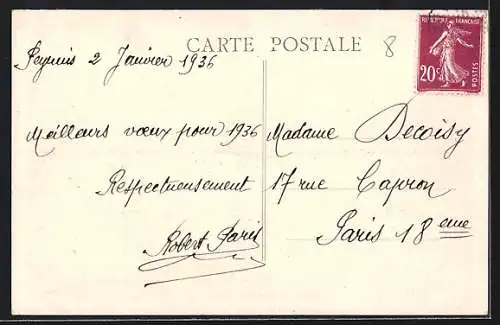 CARTE POSTALE
8
REPUBLIQUE FRANÇAISE
20c
POSTES
2 Janvier 1936
Meilleurs vœux pour 1936
Respectueusement
Robert Paris
Madame Decoisy
17 rue Capron
Paris 18 eme